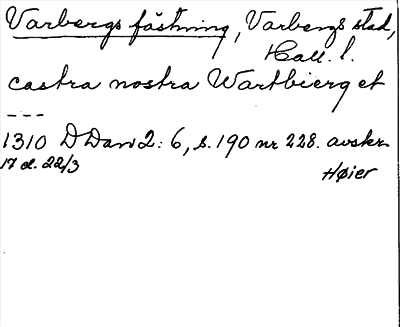 Varbergs fästning, Varbergs stad,
Hall. l.
castra nostra Wartbierg et
---
1310 DDan 2:6, s. 190 nr 228. avskr.
17 el. 22/3 Høier